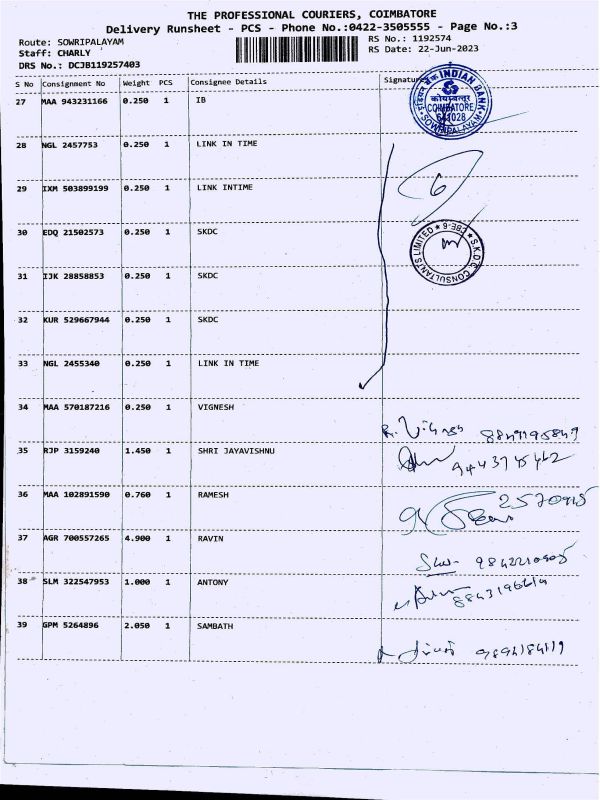 THE PROFESSIONAL COURIERS, COIMBATORE
Delivery Runsheet - PCS - Phone No.:0422-3505555 - Page No.:3
Route: SOWRIPALAYAM RS No.: 1192574
Staff: CHARLY RS Date: 22-Jun-2023
DRS No.: DCJB119257403
S No Consignment No Weight PCS Consignee Details Signature
27 MAA 943231166 0.250 1 IB
INDIAN BANK
COIMBATORE
641028
SOWRIPALAYAM
28 NGL 2457753 0.250 1 LINK IN TIME
29 IXM 503899199 0.250 1 LINK INTIME
6
30 EDQ 21502573 0.250 1 SKDC
S.K.D.C CONSULTANTS LIMITED
31 IJK 28858853 0.250 1 SKDC
32 KUR 529667944 0.250 1 SKDC
33 NGL 2455340 0.250 1 LINK IN TIME
34 MAA 570187216 0.250 1 VIGNESH
35 RJP 3159240 1.450 1 SHRI JAYAVISHNU
36 MAA 102891590 0.760 1 RAMESH
37 AGR 700557265 4.900 1 RAVIN
38 SLM 322547953 1.000 1 ANTONY
39 GPM 5264896 2.050 1 SAMBATH